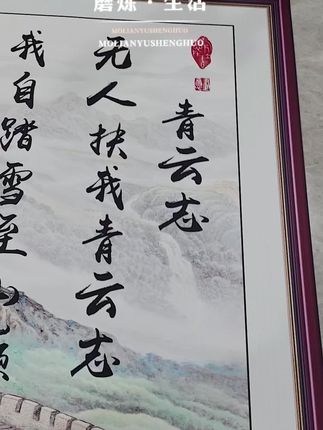 磨炼·生活
MOLIANYUSHENGHUO
青云志
无人扶我青云志
我自踏雪至山巅